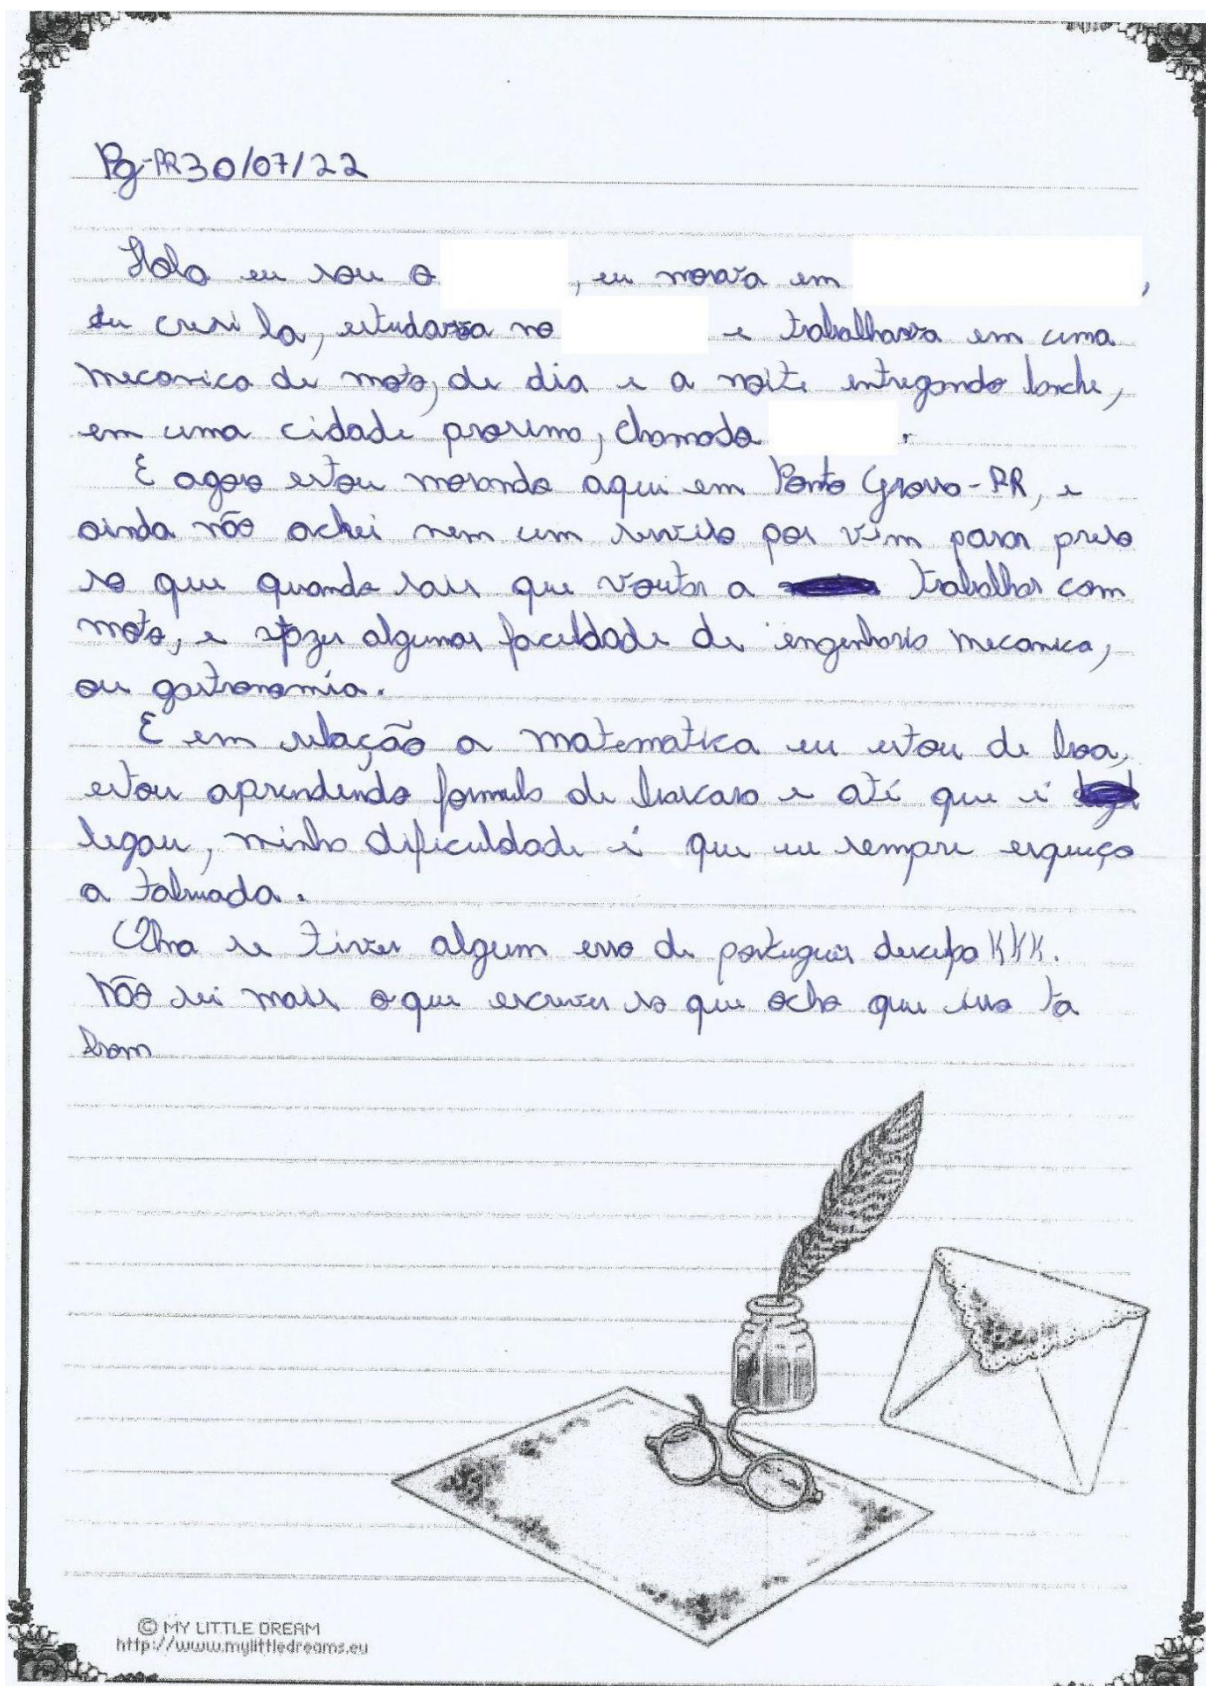 Pg-PR 30/07/22
Hola eu sou o , eu morava em ,
eu cresi la, estudava no e trabalhava em uma
mecanica de moto, de dia e a noite entregando lanche,
em uma cidade proximo, chamada .
E agora estou morando aqui em Ponta Grossa-PR, e
ainda não achei nem um serviso por vim parar preso
so que quando sair que voutar a trabalhar com
moto, e fazer alguma faculdade de engenharia mecanica,
ou gastronomia.
E em relação a matematica eu estou de boa,
estou aprendendo formula de bascara e até que é
legau, minha dificuldade é que eu sempre esqueço
a tabuada.
Olha se tiver algum erro de português desculpa KKK.
Não sei mais oque escrever so que acho que isso ta
bom
© MY LITTLE DREAM
http://www.mylittledreams.eu